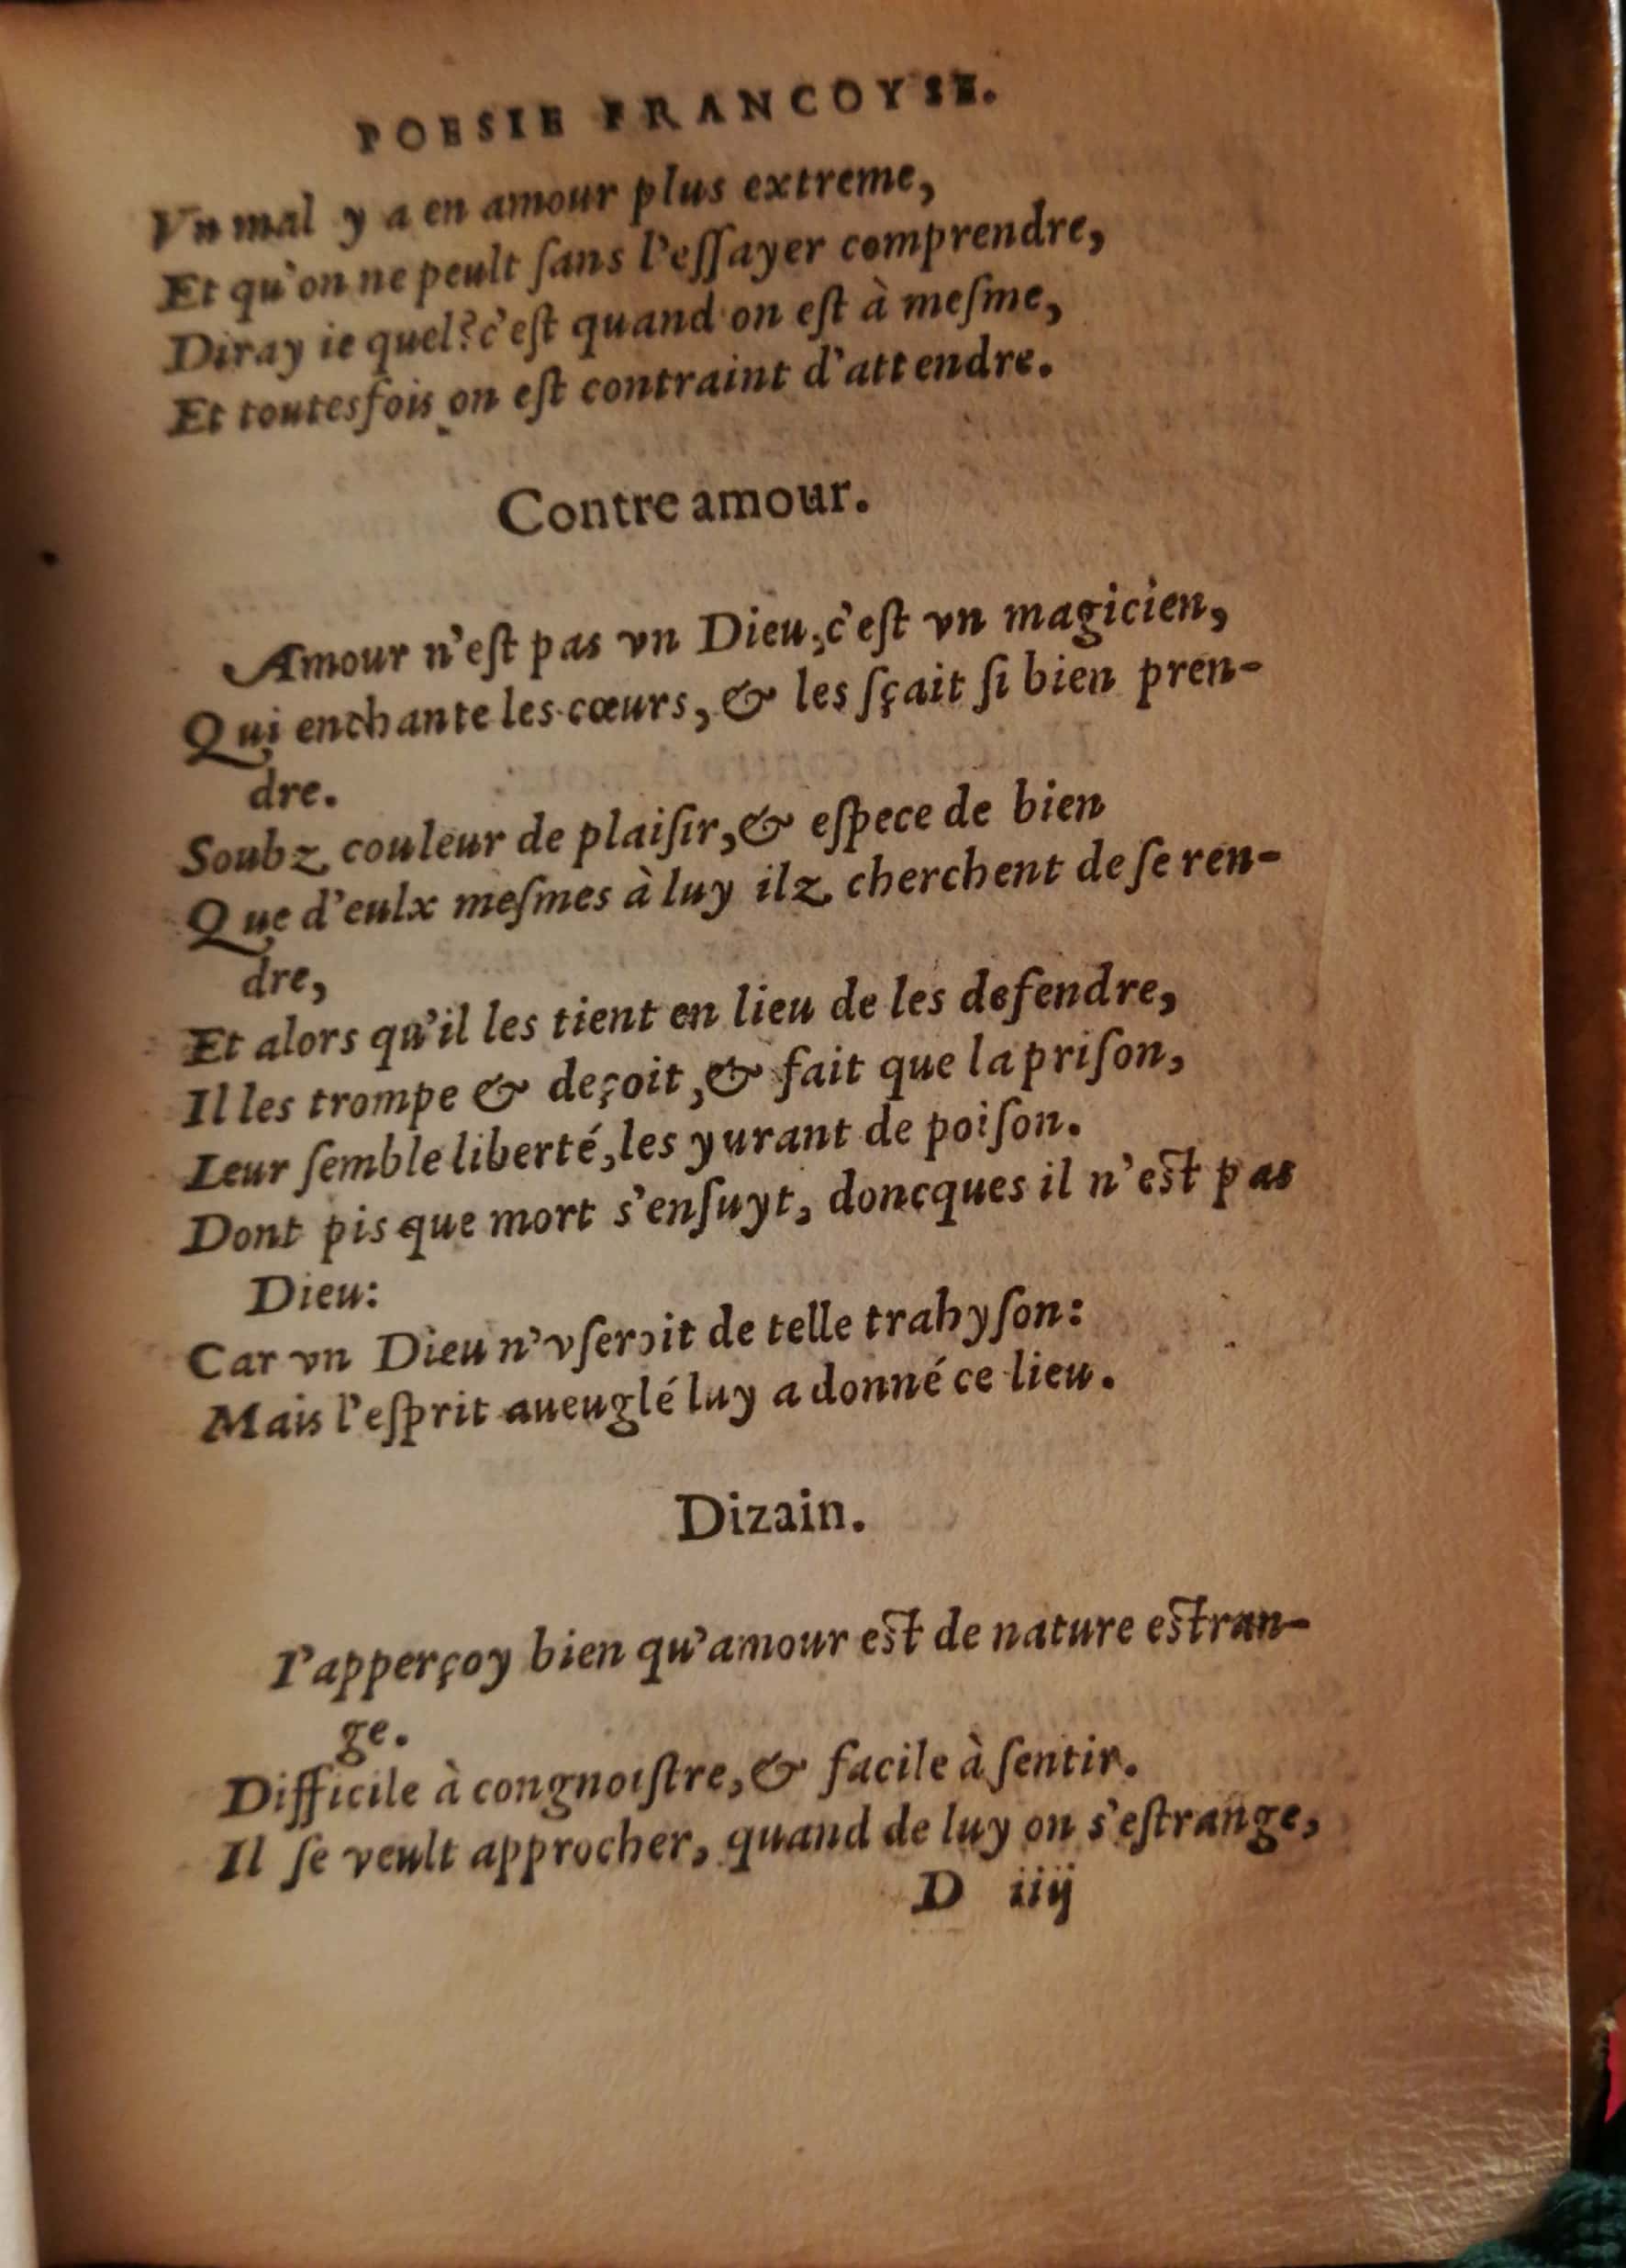 POESIE FRANCOYSE.
Vn mal y a en amour plus extreme,
Et qu'on ne peult ſans l'eſſayer comprendre,
Diray ie quel? c'eſt quand on eſt à meſme,
Et toutesfois on eſt contraint d'attendre.
Contre amour.
Amour n'eſt pas vn Dieu, c'eſt vn magicien,
Qui enchante les cœurs, & les ſçait ſi bien pren-
dre.
Soubz couleur de plaiſir, & eſpece de bien
Que d'eulx meſmes à luy ilz cherchent de ſe ren-
dre,
Et alors qu'il les tient en lieu de les defendre,
Il les trompe & deçoit, & fait que la priſon,
Leur ſemble liberté, les yurant de poiſon.
Dont pis que mort s'enſuyt, doncques il n'est pas
Dieu:
Car vn Dieu n'vſeroit de telle trahyſon:
Mais l'eſprit aueuglé luy a donné ce lieu.
Dizain.
I'apperçoy bien qu'amour est de nature estran-
ge.
Difficile à congnoiſtre, & facile à ſentir.
Il ſe veult approcher, quand de luy on s'eſtrange,
D iiij